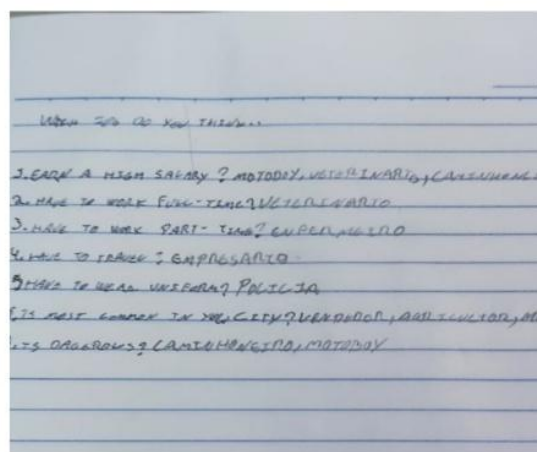 WHICH JOB DO YOU THINK..
1. EARN A HIGH SALARY? MOTOBOY, VETERINARIO, CAMINHONE
2. HAVE TO WORK FULL-TIME? VETERINARIO
3. HAVE TO WORK PART-TIME? ENFERMEIRO
4. HAVE TO TRAVEL? EMPRESARIO
5 HAVE TO WEAR UNIFORM? POLICIA
IS MOST COMMON IN YOUR CITY? VENDEDOR, AGRICULTOR,
IS DAGEROUS? CAMINHONEIRO, MOTOBOY